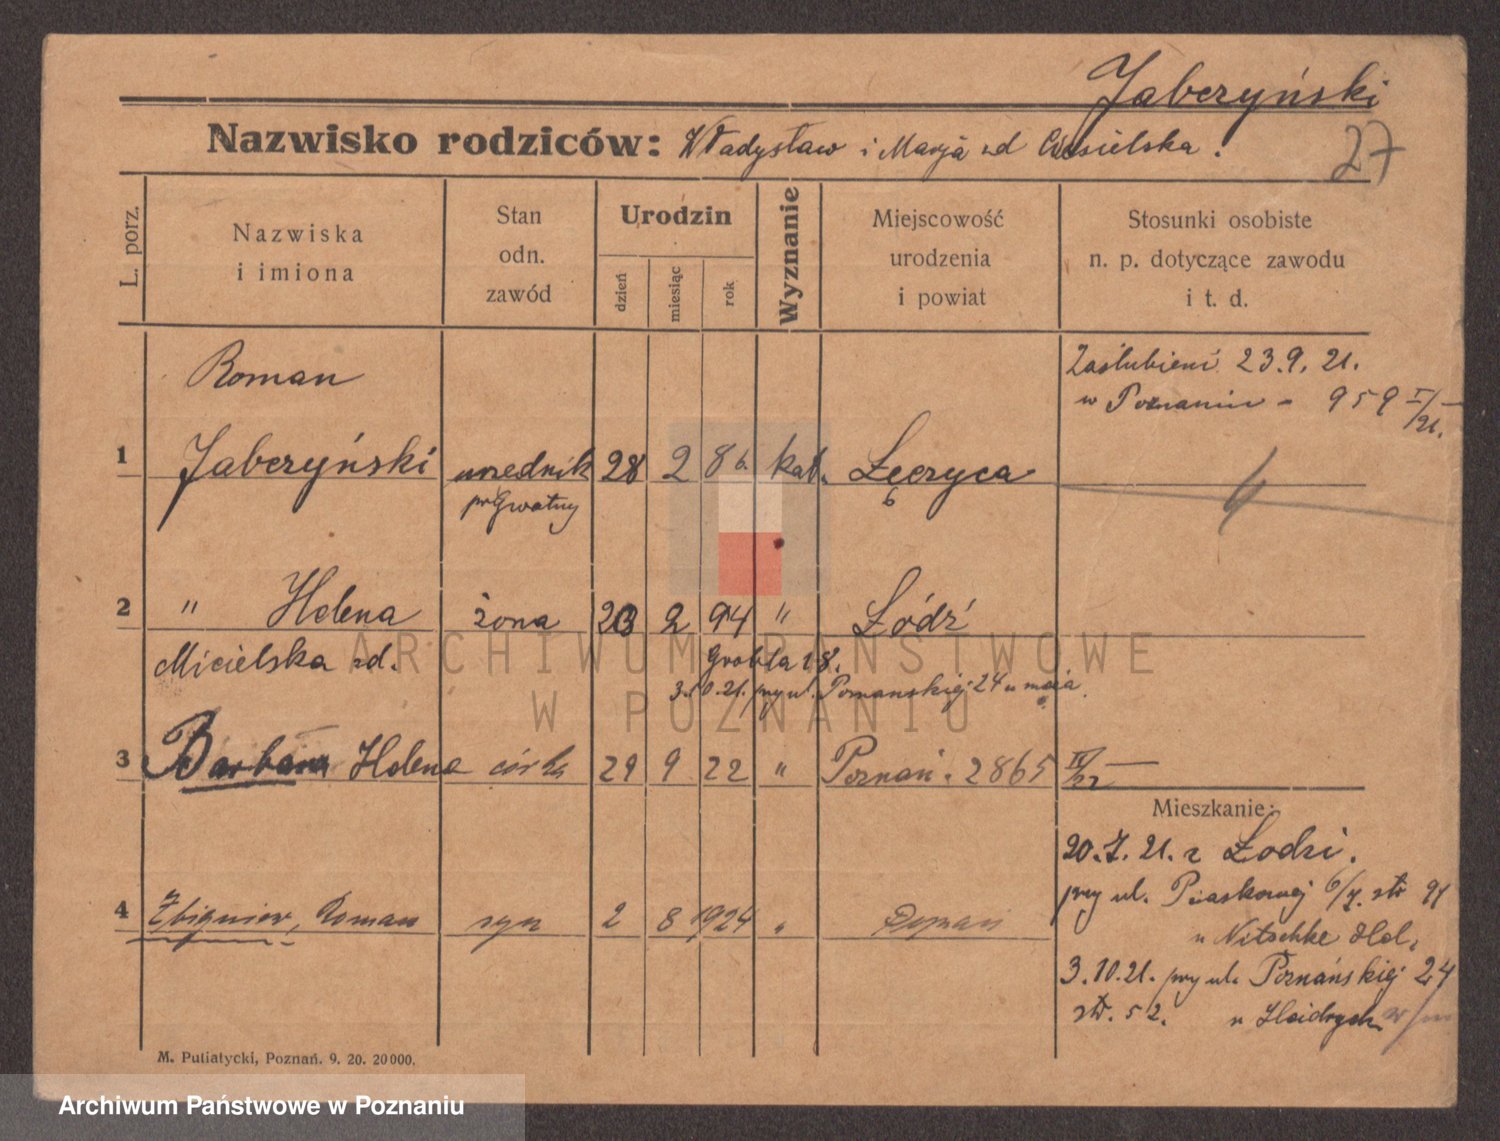 Jaberzyński
Nazwisko rodziców: Władysław i Marja zd Ciesielska.
27
L. porz.
Nazwiska i imiona
Stan odn. zawód
Urodzin
dzień
miesiąc
rok
Wyznanie
Miejscowość urodzenia i powiat
Stosunki osobiste n. p. dotyczące zawodu i t. d.
Roman
Zaślubieni 23.9.21.
w Poznaniu - 959 I/21.
1 Jaberzyński urzednik 28 2 86. kat. Łęczyca
prywatny
6
2 " Helena żona 23 2 94 " Łódź
Micielska zd.
Grobla 28.
3.10.21. przy ul. Poznańskiej 24 u męża
ARCHIWUM PAŃSTWOWE
W POZNANIU
3 Barbara Helena córka 29 9 22 " Poznań. 2865 IV/22
Mieszkanie:
20.7.21. z Łodzi.
przy ul. Piaskowej 6/7. str 91
u Nitschke Hel.
4 Zbigniew, Roman syn 2 8 1924 " Poznań
3.10.21. przy ul. Poznańskiej 24
str. 52. u Heidrych
M. Putiatycki, Poznań. 9. 20. 20000.
Archiwum Państwowe w Poznaniu